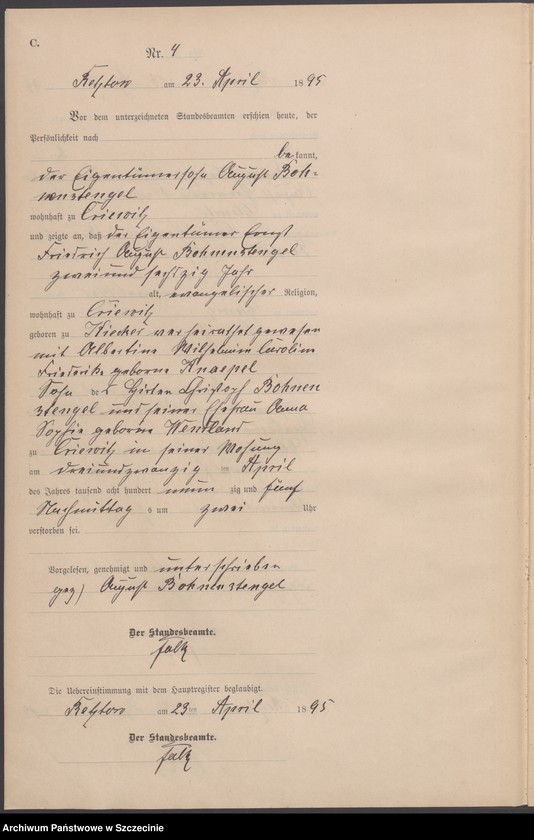 C.
Nr. 4
am 23. April 1895
Vor dem unterzeichneten Standesbeamten erschien heute, der
Persönlichkeit nach
bekannt,
der Eigentümersohn August Boh-
nenstengel
wohnhaft zu Criewitz
und zeigte an, daß der Eigentümer Ernst
Friedrich August Bohnenstengel
zweiund sechszig Jahr
alt, evangelischer Religion,
wohnhaft zu Criewitz
geboren zu verheirathet gewesen
mit Albertine Wilhelmine Caroline
Friederike geborne Knaepel
Sohn des Hirten Christoph Bohnen
stengel und seiner Ehefrau Anna
Sophie geborne Wendland
zu Criewitz in seiner Wohung
am dreiundzwanzig im April
des Jahres tausend acht hundert neun zig und fünf
Nachmittag s um zwei Uhr
verstorben sei.
Vorgelesen, genehmigt und unterschrieben
gez) August Bohnenstengel
Der Standesbeamte.
Falk
Die Uebereinstimmung mit dem Hauptregister beglaubigt.
am 23 ten April 1895
Der Standesbeamte.
Falk
Archiwum Państwowe w Szczecinie